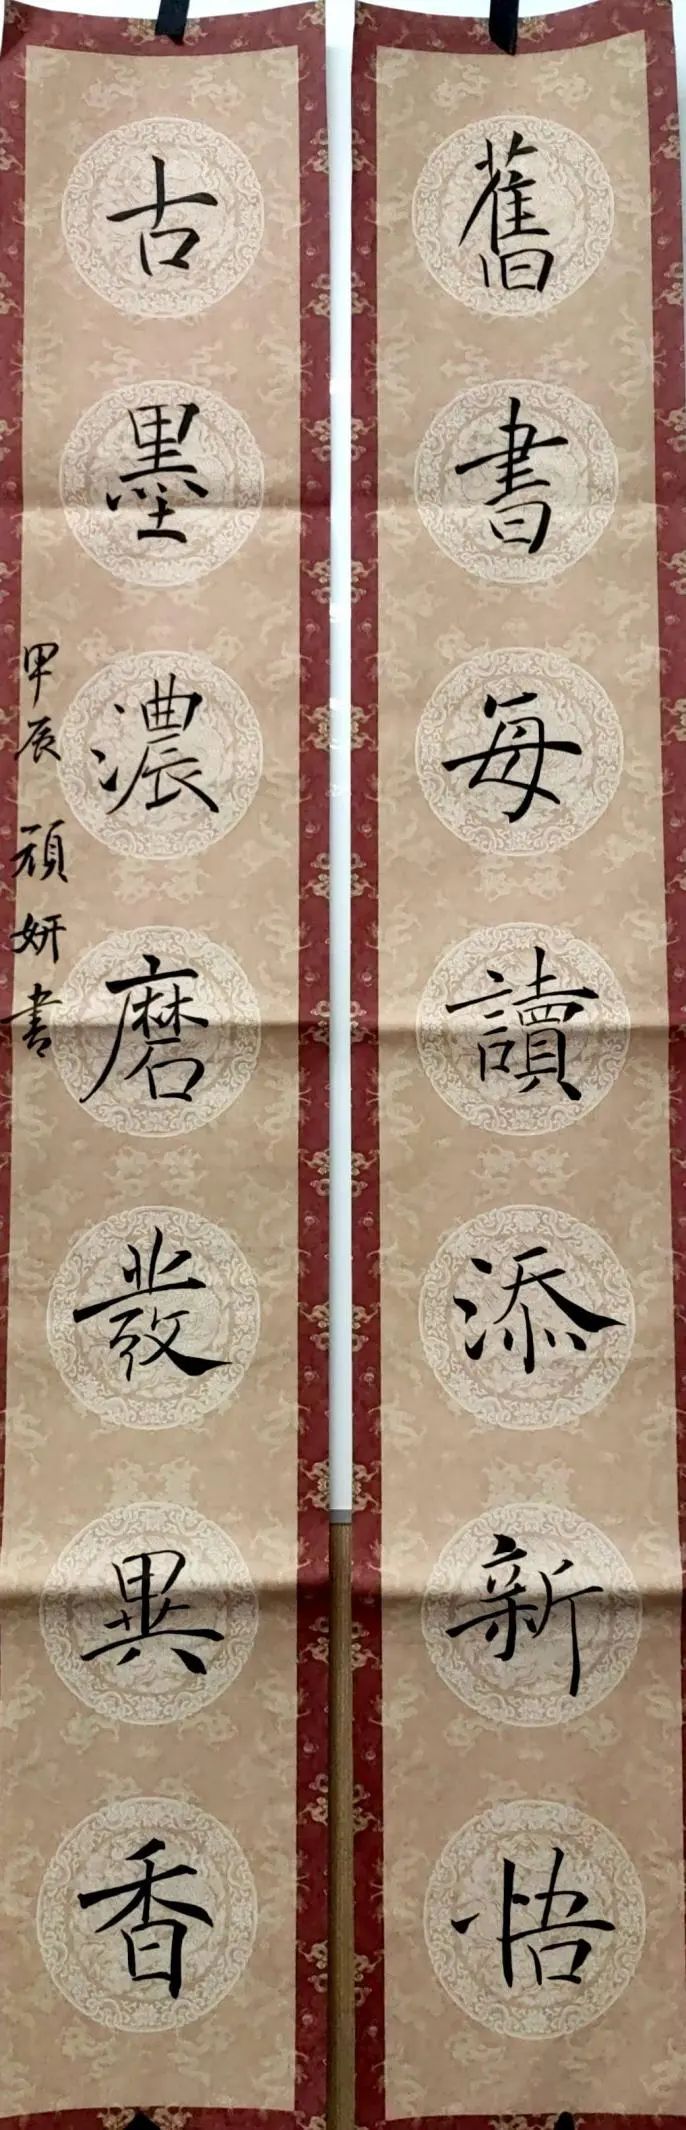 舊書每讀添新悟
古墨濃磨發異香
甲辰 顽妍書